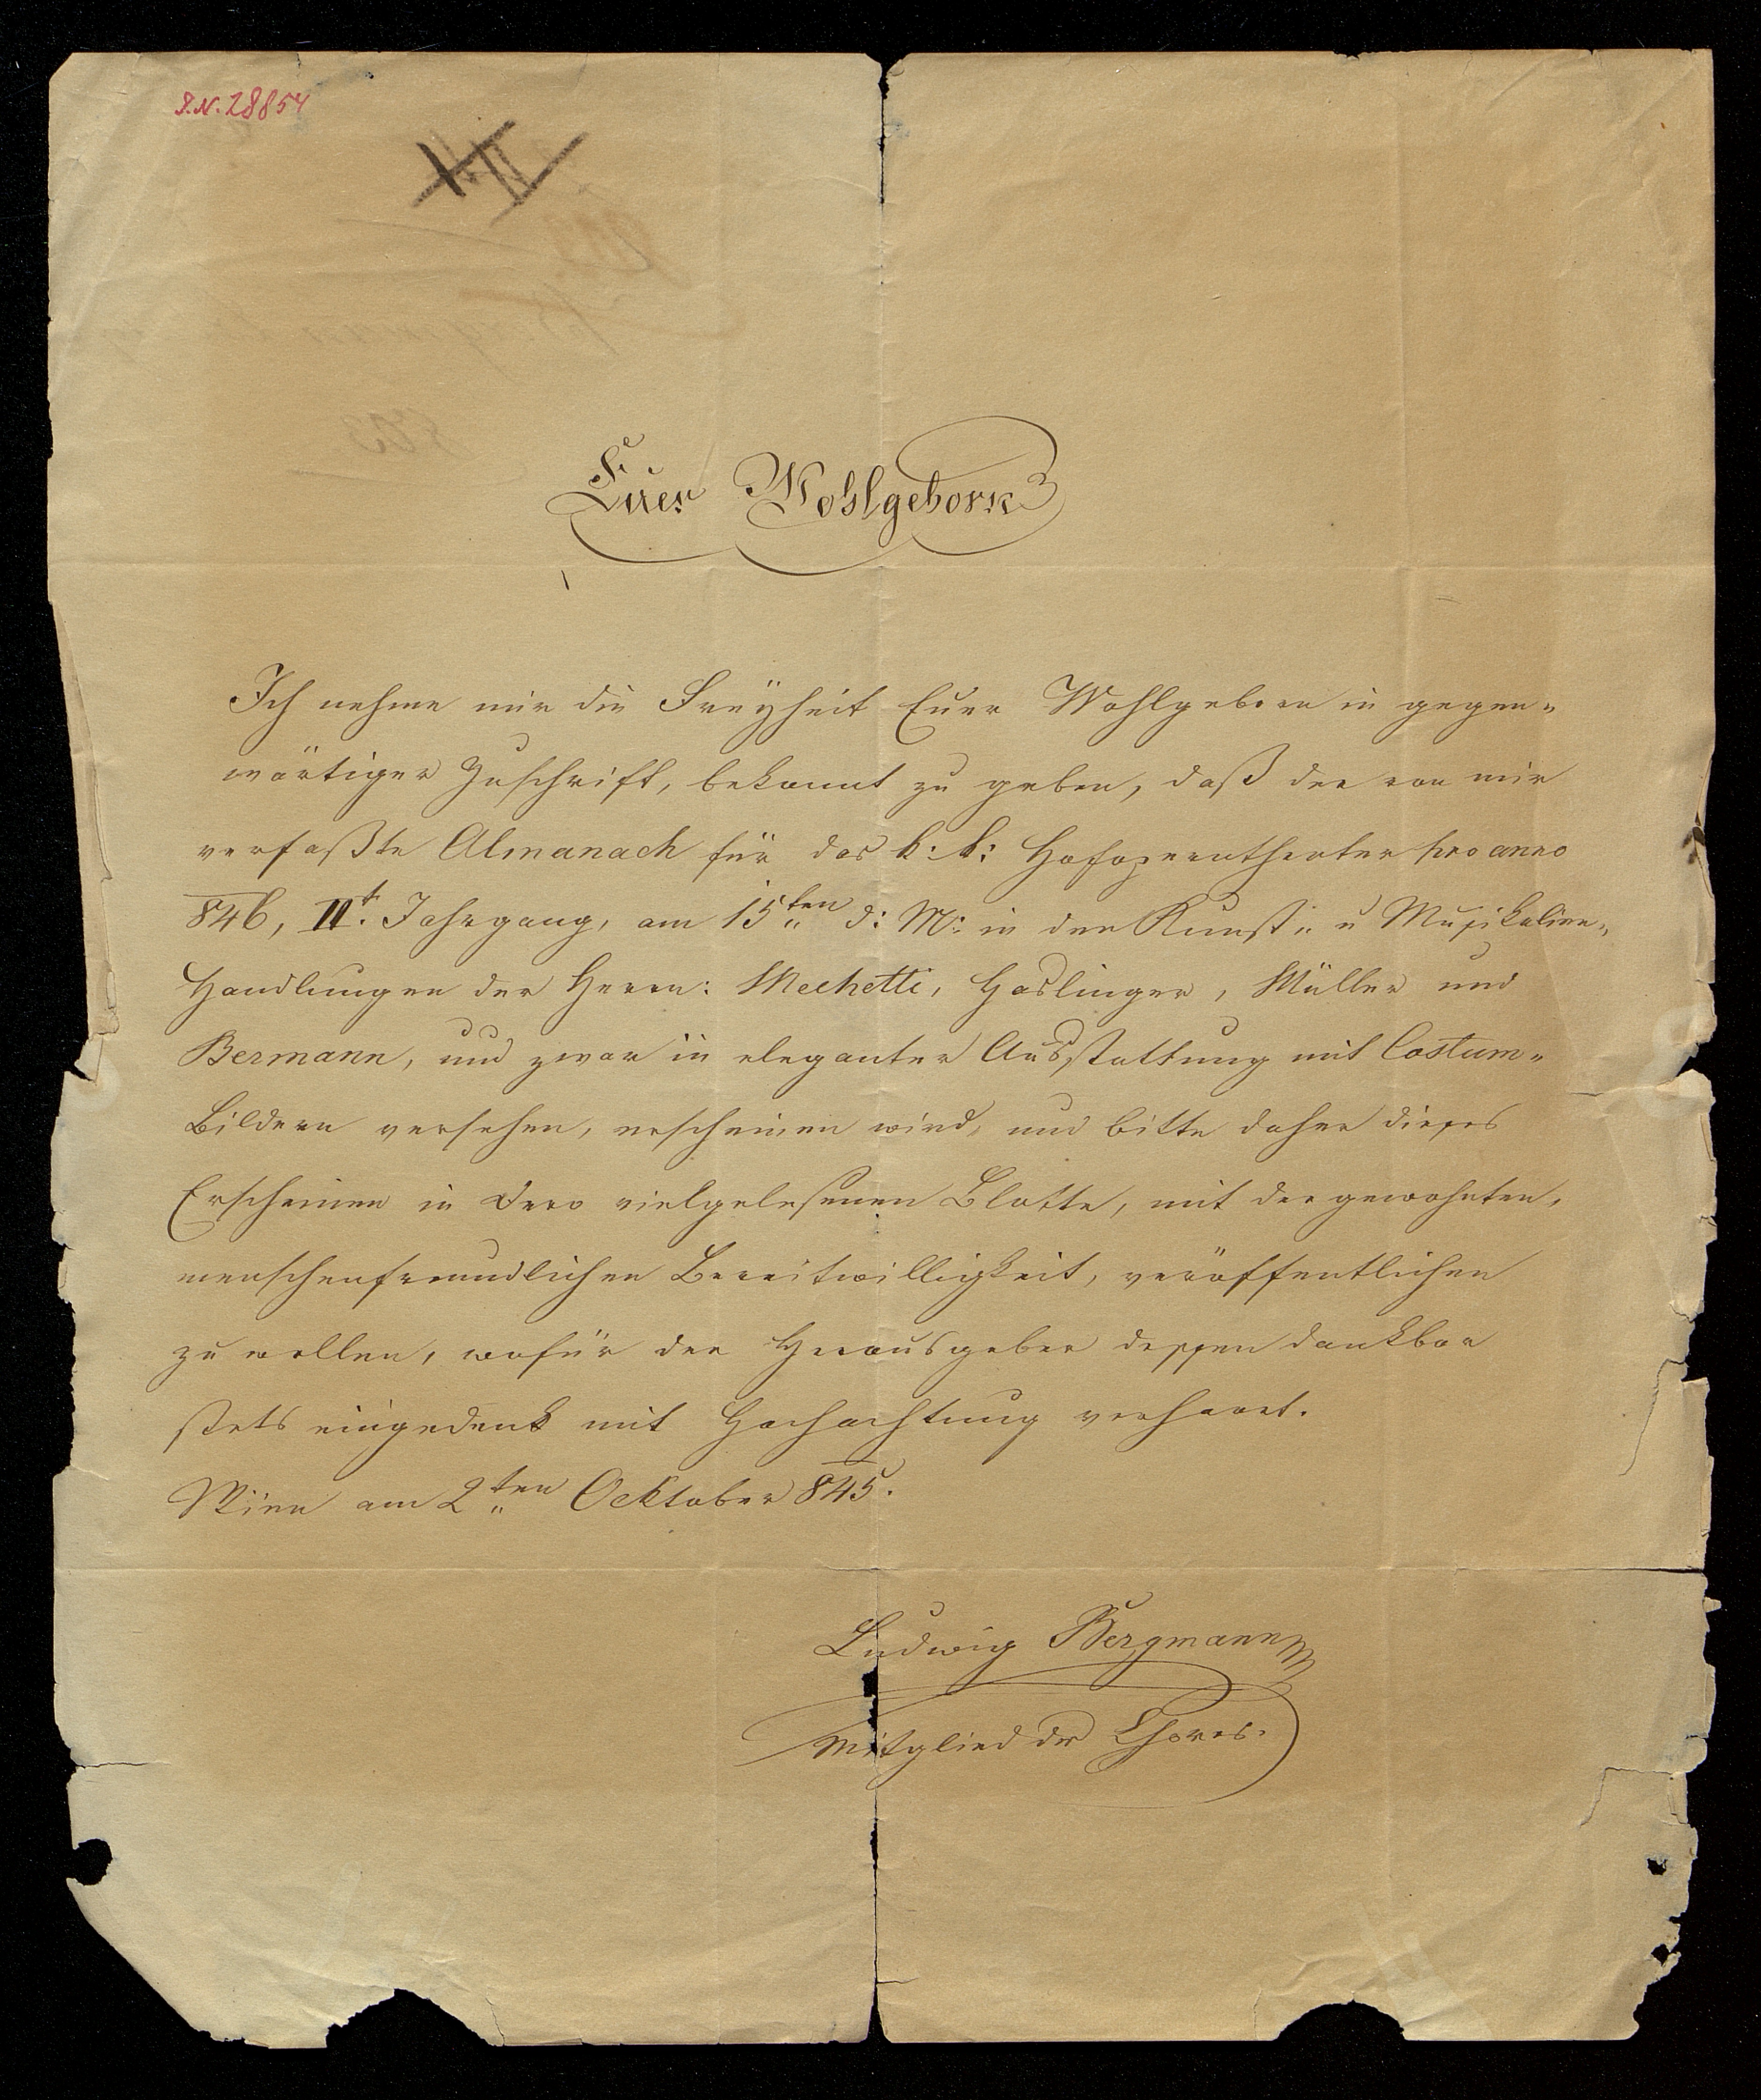 I.N. 28854
Euer Wohlgeborn
Ich nehme mir die Freÿheit Euer Wohlgeboren in gegen„
wärtiger Zuschrift, bekannt zu geben, daß der von mir
verfaßte Almanach für das k: k: Hofoperntheater pro anno
846, IIt. Jahrgang, am 15ten d: M: in den Kunst„ u Musikalien„
Handlungen der Herrn: Mechetti, Haslinger, Müller und
Bermann, und zwar in eleganter Ausstattung mit Costum„
Bildern versehen, erscheinen wird, und bitte daher dieses
Erscheinen in Dero vielgelesenen Blatte, mit der gewohnten,
menschenfreundlichen Bereitwilligkeit, veröffentlichen
zu wollen, wofür der Herausgeber dessen dankbar
stets eingedenk mit Hochachtung verharret.
Wien am 2ten Ocktober 845.
Ludwig Bergmann
Mitglied des Chores.